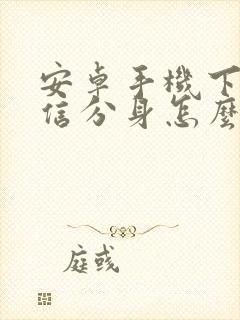 安卓手機下
信分身怎麼
庭彧